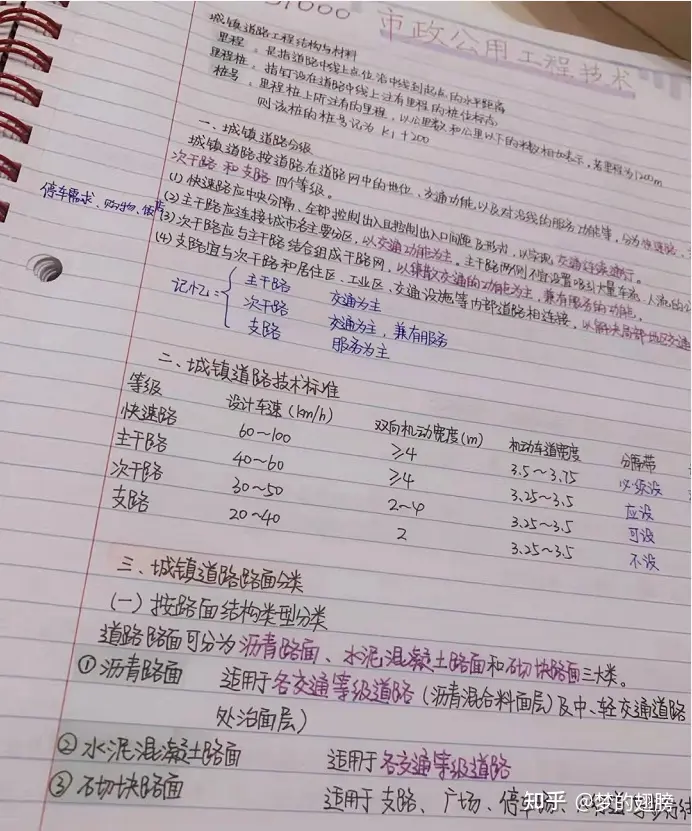 1000 市政公用工程技术
城镇道路工程结构与材料
里程：是指道路中线上点位沿中线到起点的水平距离
里程桩：指钉设在道路中线上注有里程的桩位标志
桩号：里程桩上所注有的里程，以公里数和公里以下的米数相加表示，若里程为1200m
则该桩的桩号记为 K1+200
一、城镇道路分级
城镇道路按道路在道路网中的地位、交通功能以及对沿线的服务功能等，分为快速路、
次干路和支路四个等级。
(1) 快速路应中央分隔、全部控制出入且控制出入口间距及形式，以实现交通连续通行。
停车需求、购物、
(2) 主干路应连接城市各主要分区，以交通功能为主。主干路两侧不宜设置吸引大量车流、人流的公
(3) 次干路应与主干路结合组成干路网，以集散交通的功能为主，兼有服务的功能。
(4) 支路宜与次干路和居住区、工业区、交通设施等内部道路相连接，以解决局部地区交通
记忆：
主干路 交通为主
次干路 交通为主，兼有服务
支路 服务为主
二、城镇道路技术标准
等级 设计车速(km/h) 双向机动宽度(m) 机动车道宽度 分隔带
快速路 60~100 ≥4 3.5~3.75 必须设
主干路 40~60 ≥4 3.25~3.5 应设
次干路 30~50 2~4 3.25~3.5 可设
支路 20~40 2 3.25~3.5 不设
三、城镇道路路面分类
(一) 按路面结构类型分类
道路路面可分为沥青路面、水泥混凝土路面和砌块路面三大类。
① 沥青路面 适用于各交通等级道路（沥青混合料面层）及中、轻交通道路
处治面层）
② 水泥混凝土路面 适用于各交通等级道路
③ 砌块路面 适用于支路、广场、停车场、
知乎 @梦的翅膀